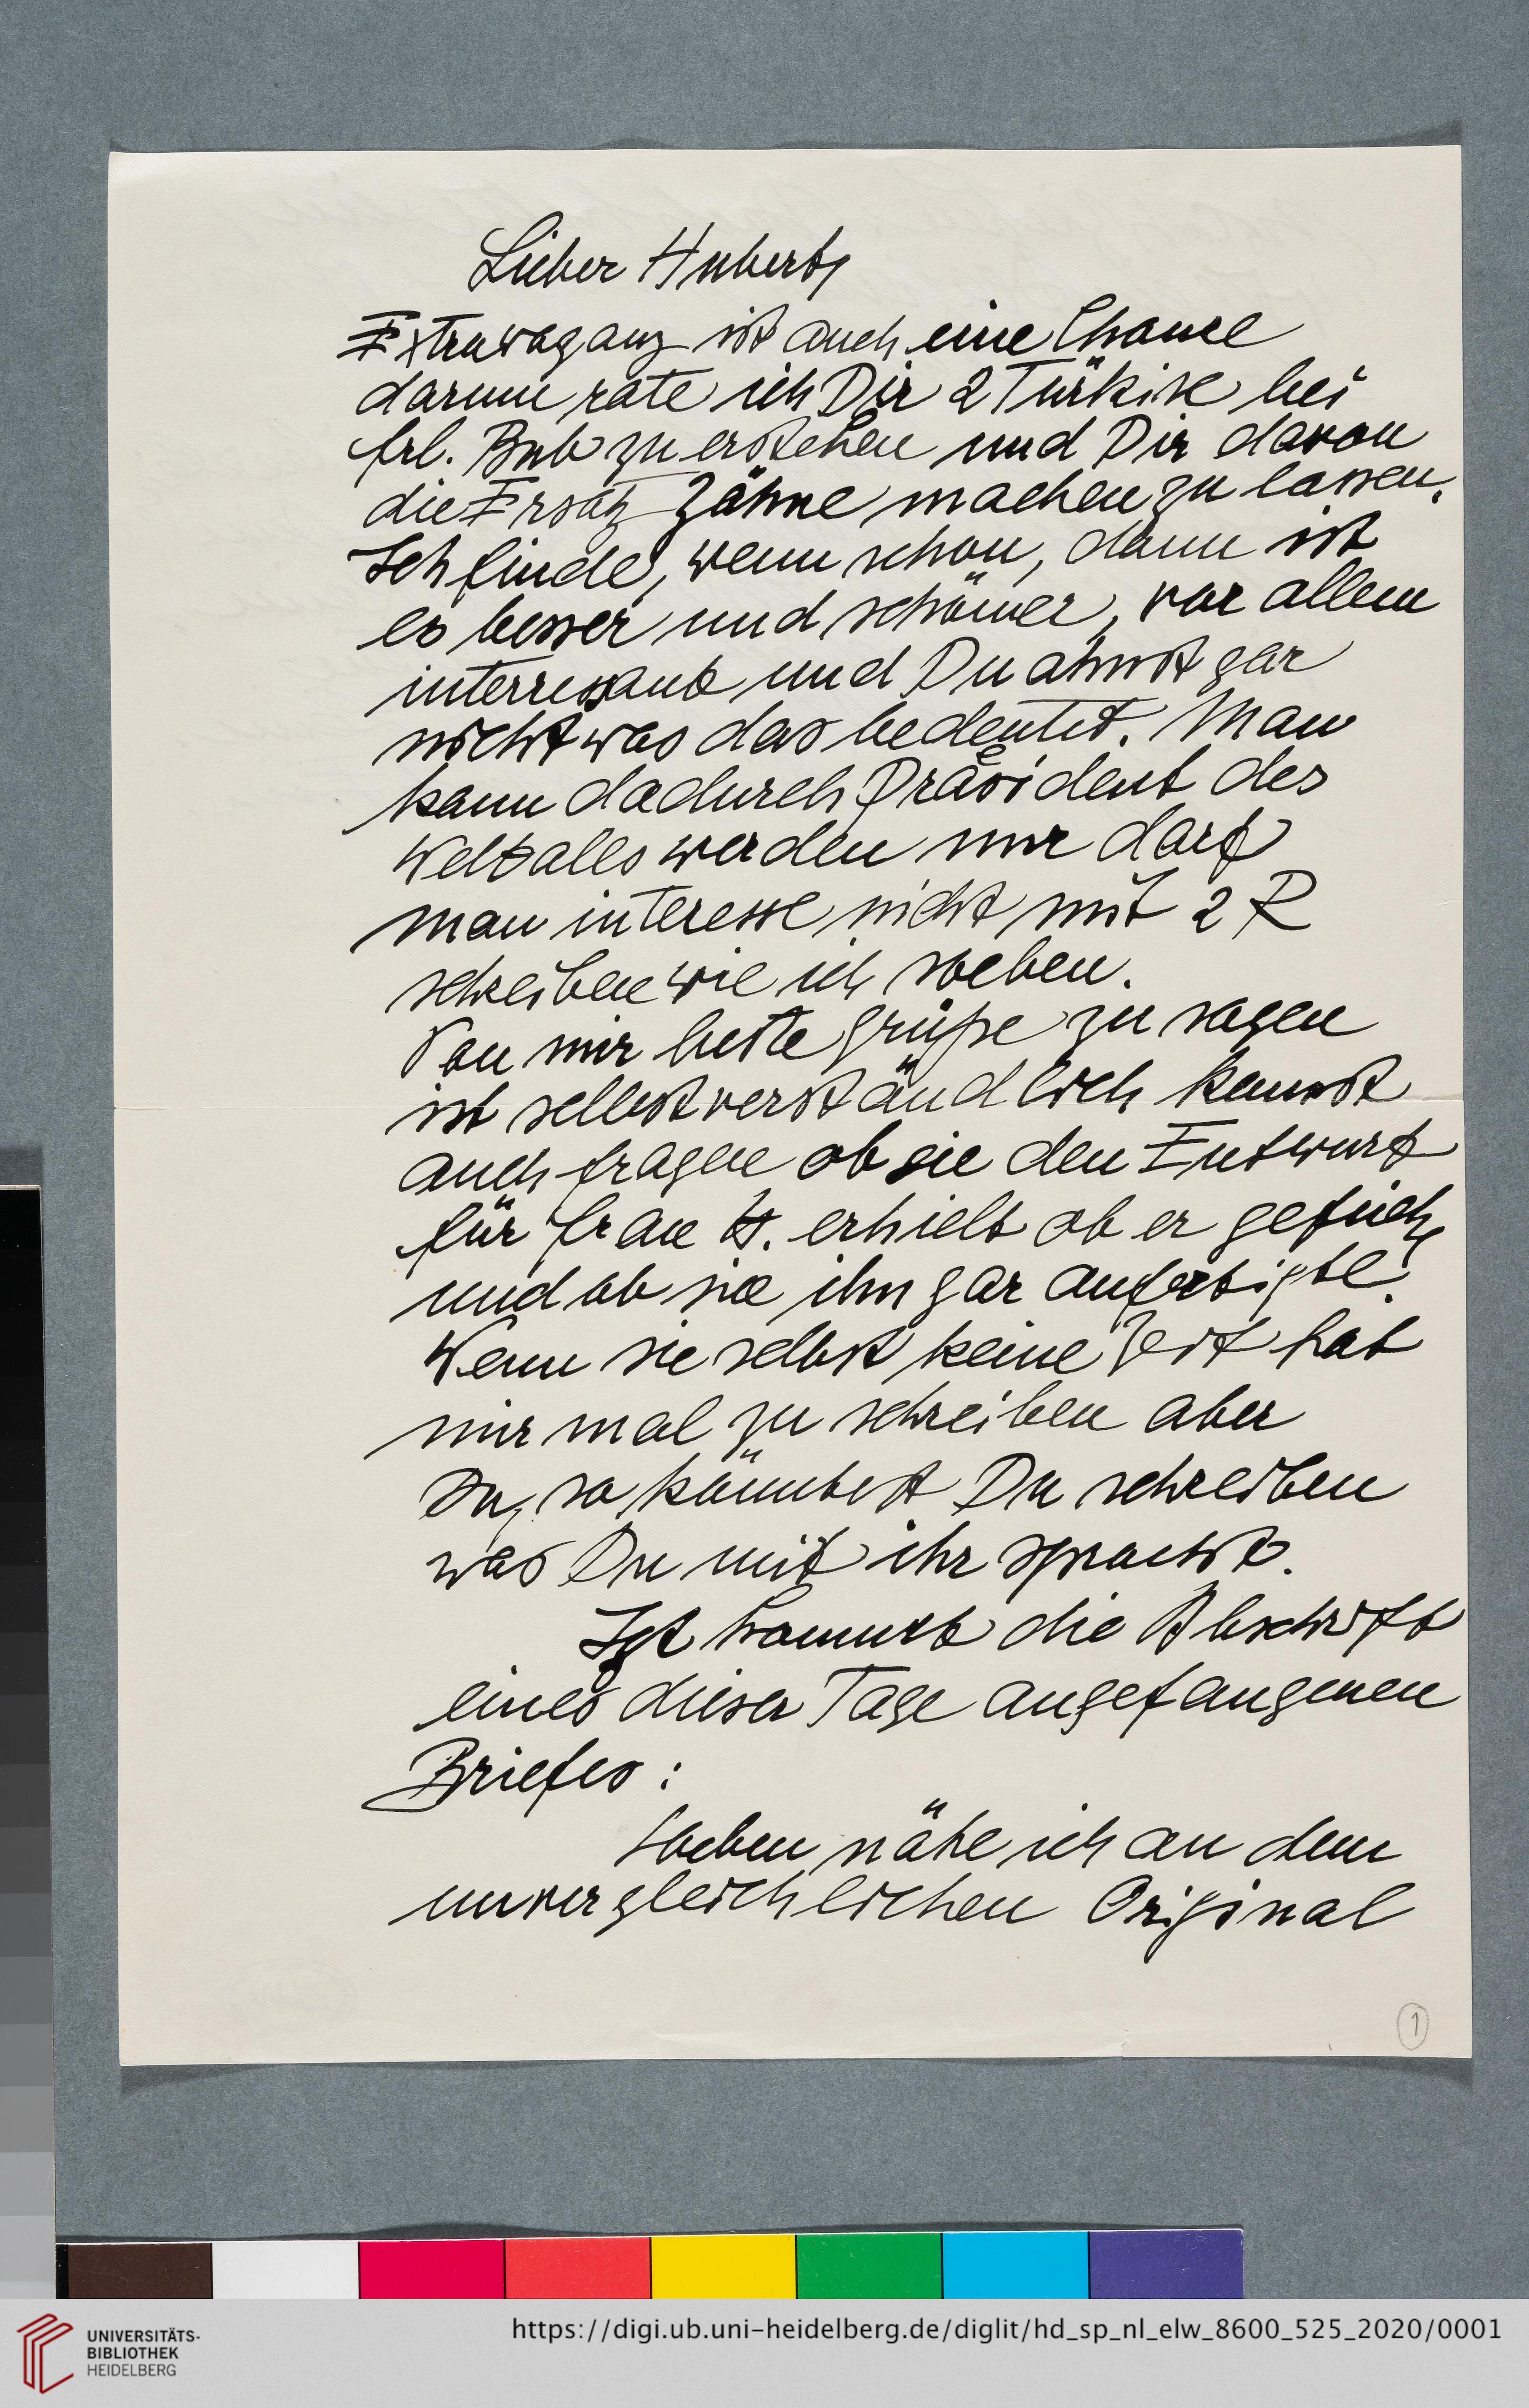 Lieber Hubert,
Extravaganz ist auch eine Chance
darum rate ich Dir 2 Türkise bei
Frl. Bub zu erstehen und Dir davon
die Ersatz Zähne machen zu lassen.
Ich finde, wenn schon, dann ist
es besser und schöner, vor allem
interressant und Du ahnst gar
nicht was das bedeutet. Man
kann dadurch Präsident des
Weltalls werden nur darf
man interesse nicht mit 2 R
schreiben wie ich soeben.
Von mir beste Grüße zu sagen
ist selbstverständlich kannst
auch fragen ob sie den Entwurf
für Frau H. erhielt ob er gefiel,
und ob sie ihn gar anfertigte.
Wenn sie selbst keine Zeit hat
mir mal zu schreiben aber
Du, so könntest Du schreiben
was Du mit ihr sprachst.
Jzt kommt die Abschrift
eines dieser Tage angefangenen
Briefes:
Soeben nähe ich an dem
unvergleichlichen Original
1
UNIVERSITÄTS-
BIBLIOTHEK
HEIDELBERG
https://digi.ub.uni-heidelberg.de/diglit/hd_sp_nl_elw_8600_525_2020/0001